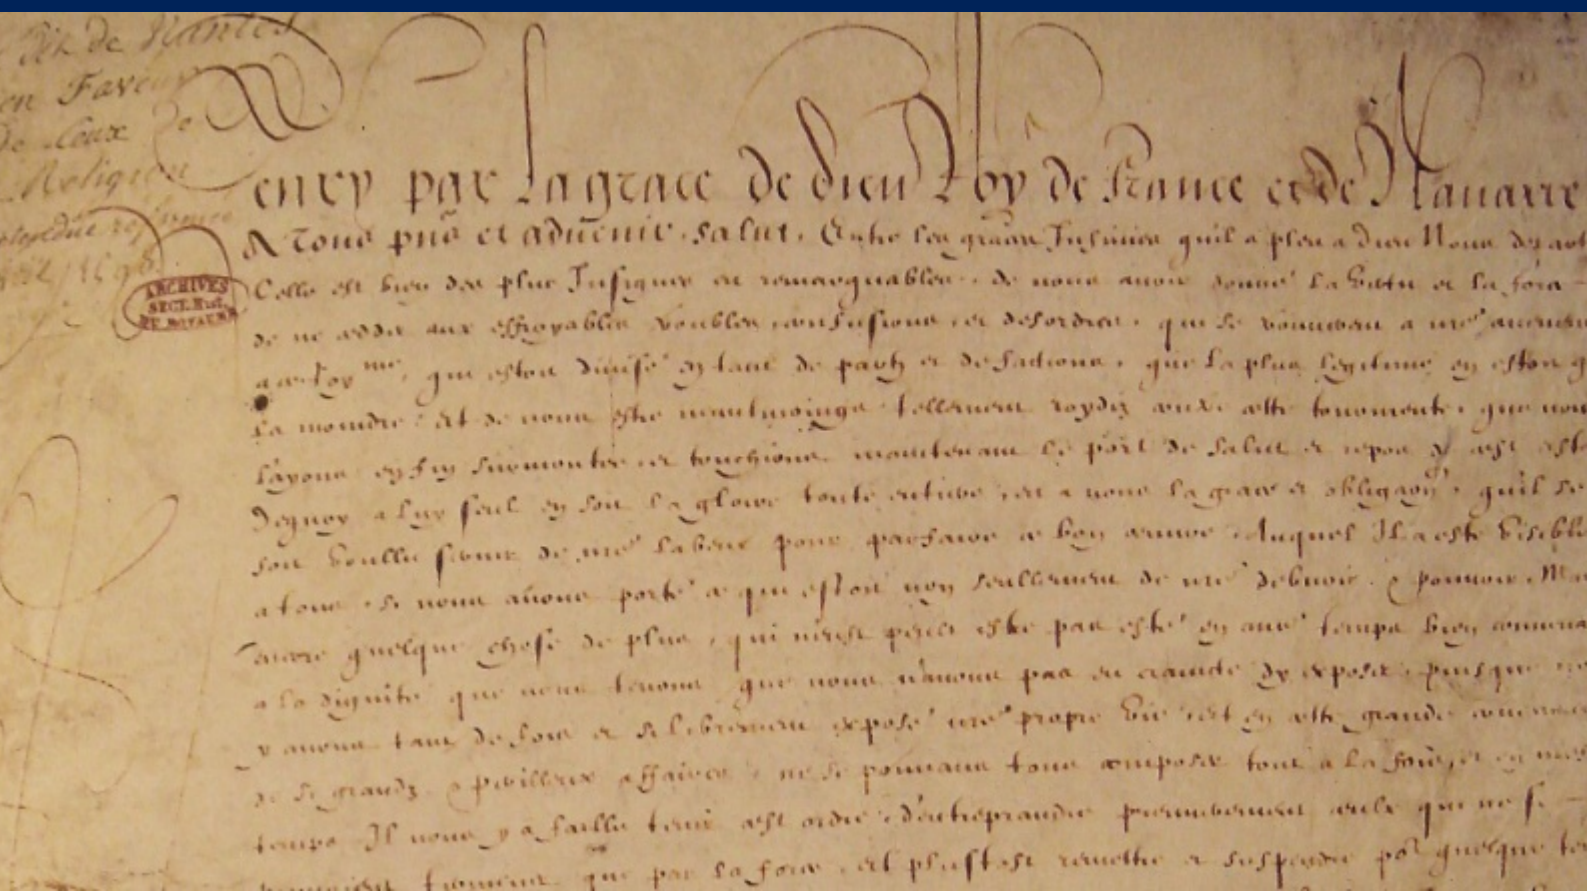 Edit de Nantes
en Faveur
De Ceux De
La Religion
ARCHIVES
SECT. HIST.
DU ROYAUME
Henry par la grace de dieu Roy de france et de Nauarre
A tous pñs et aduenir, salut. Entre les graces Infinies quil a pleu a dieu Nous departir
Celle est bien des plus Insignes et remarquables, de nous auoir donné la vertu et la force
de ne ceder aux effroyables troubles, confusions et desordres, qui se trouuerent a nre aduenement
a ce Royme, qui estoit diuisé en tant de partz et de factions, que la plus legitime en estoit q
la moindre, et de nous estre neantmoings tellement roydiz contre ceste tourmente, que nous
layons enfin surmontee et touchions maintenant le port de salut et repos
Dequoy a luy seul en soit la gloire toute entiere, et a nous la grace et obligaon, quil se
soit voullu seruir de nre labeur pour parfaire ce bon oeuure, Auquel Il a esté visible
a tous, si nous auons porté ce qui estoit non seullement de nre debuoir & pouuoir, Mais
encore quelque chose de plus, qui neust peult estre pas esté en autre temps bien conuena
a la dignité que nous tenons, que nous nauons pas eu craincte dy exposer, puisque
y auons tant de fois et si librement exposé nre propre vie, Et en ceste grande
de si grandz & perilleux affaires, ne se pouuans tous composer tout a la fois, et en mesme
temps Il nous y a fallu tenir cest ordre, dentreprendre premierement ceulx qui ne se
pouuoient terminer que par la force, et plustost remettre et suspendre por quelque te